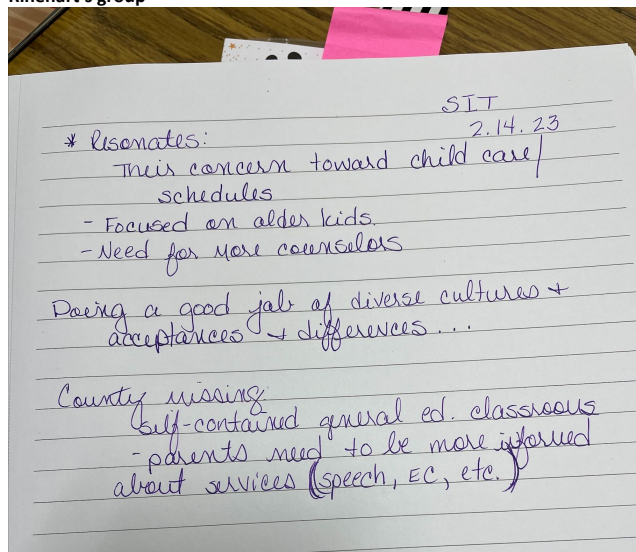 Rinehart's group
SIT
2.14.23
* Resonates:
Their concern toward child care/
schedules
- Focused on older kids.
- Need for more counselors
Doing a good job of diverse cultures +
acceptances + differences...
County missing:
self-contained general ed. classrooms
- parents need to be more informed
about services (speech, EC, etc.)